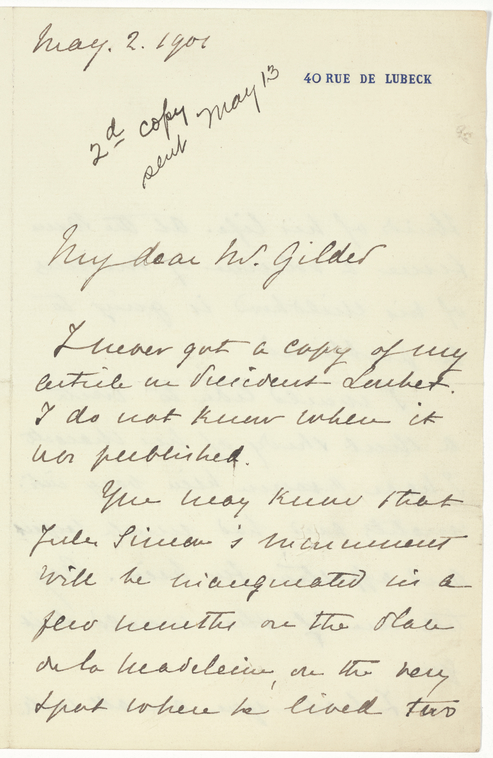 May. 2. 1901
40 RUE DE LUBECK
2d copy
sent May 13
My dear Mr. Gilder
I never got a copy of my
article on President Loubet.
I do not know when it
was published.
You may know that
Jules Simon's monument
will be inaugurated in a
few months on the Place
de la Madeleine, on the very
spot where he lived two